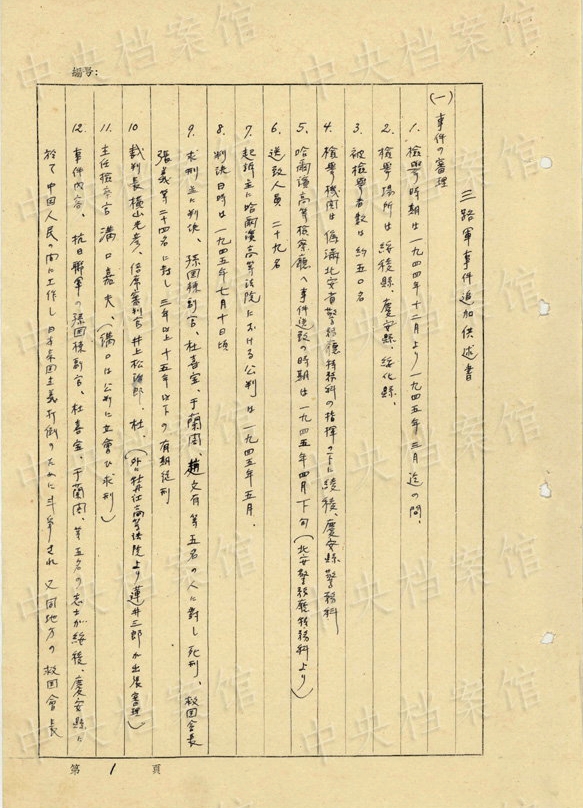 編号:
三路軍事件追加供述書
(一) 事件の審理
1. 檢擧時期は一九四四年十二月より一九四五年三月迄の間、
2. 檢擧場所は綏稜縣、慶安縣、綏化縣、
3. 被檢擧者数は約五〇名
4. 檢擧機関は偽満北安省警務廳特務科の指揮の下に綏稜、慶安縣警務科
5. 哈爾濱高等檢察廳へ事件送致の時期は一九四五年四月下旬(北安警務廳特務科より)
6. 送致人員 二十九名
7. 起訴並に哈爾濱高等法院における公判は一九四五年五月、
8. 判決日時は一九四五年七月十日頃
9. 求刑並に判決、孫国棟副官、杜喜宝、于蘭閣、趙文有等五名の人に對し死刑、救国會長
張義等二十四名に對し三年以上十五年以下の有期徒刑
10 裁判長横山光彦、倍席審判官 井上松治郎、杜、(外に牡丹江高等法院より蓮井三郎が出張審理)
11. 主任檢察官 溝口嘉夫、(溝口は公判に立會ひ求刑)
12. 事件内容、抗日聯軍の孫国棟副官、杜喜宝、于蘭閣、等五名の志士が綏稜、慶安縣に
於て中国人民の間に工作し日本帝国主義打倒のために斗争され 又同地方の救国會長
第 1 頁
中央档案馆